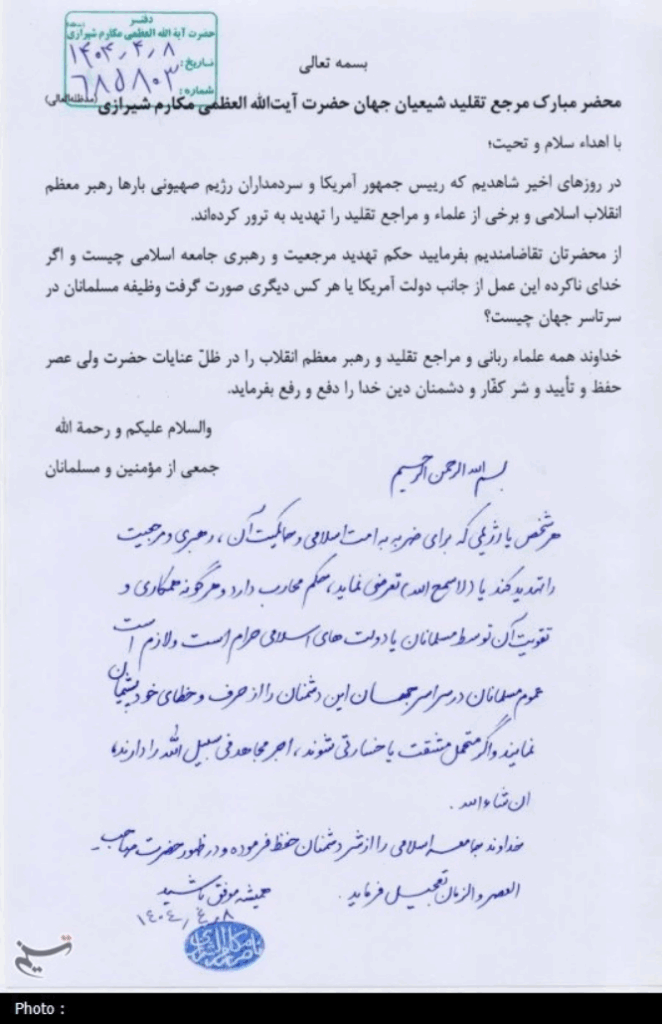 دفتر
حضرت آیة الله العظمی مکارم شیرازی
تاریخ: ۱۴۰۴٫۴٫۸
شماره: ۶۸۵۸۰۳
بسمه تعالی
محضر مبارک مرجع تقلید شیعیان جهان حضرت آیت‌الله العظمی مکارم شیرازی (مدظله‌العالی)
با اهداء سلام و تحیت؛
در روزهای اخیر شاهدیم که رییس جمهور آمریکا و سردمداران رژیم صهیونی بارها رهبر معظم
انقلاب اسلامی و برخی از علماء و مراجع تقلید را تهدید به ترور کرده‌اند.
از محضرتان تقاضامندیم بفرمایید حکم تهدید مرجعیت و رهبری جامعه اسلامی چیست و اگر
خدای ناکرده این عمل از جانب دولت آمریکا یا هر کس دیگری صورت گرفت وظیفه مسلمانان در
سرتاسر جهان چیست؟
خداوند همه علماء ربانی و مراجع تقلید و رهبر معظم انقلاب را در ظلّ عنایات حضرت ولی عصر
حفظ و تأیید و شر کفّار و دشمنان دین خدا را دفع و رفع بفرماید.
والسلام علیکم و رحمة الله
جمعی از مؤمنین و مسلمانان
بسم الله الرحمن الرحیم
هر شخص یا رژیمی که برای ضربه به امت اسلامی و حاکمیت آن، رهبری و مرجعیت
را تهدید کند یا (لاسمح الله) تعرضی نماید، حکم محارب دارد و هرگونه همکاری و
تقویت آن توسط مسلمانان یا دولت های اسلامی حرام است و لازم است
عموم مسلمانان در سراسر جهان این دشمنان را از حرف و خطای خود پشیمان
نمایند و اگر متحمل مشقت یا خسارتی شوند، اجر مجاهد فی سبیل الله را دارند
ان شاءالله.
خداوند جامعه اسلامی را از شر دشمنان حفظ فرموده و در ظهور حضرت صاحب
العصر والزمان تعجیل فرماید.
همیشه موفق باشید
۱۴۰۴٫۴٫۸
ناصر مکارم شیرازی
تسنیم
Photo :